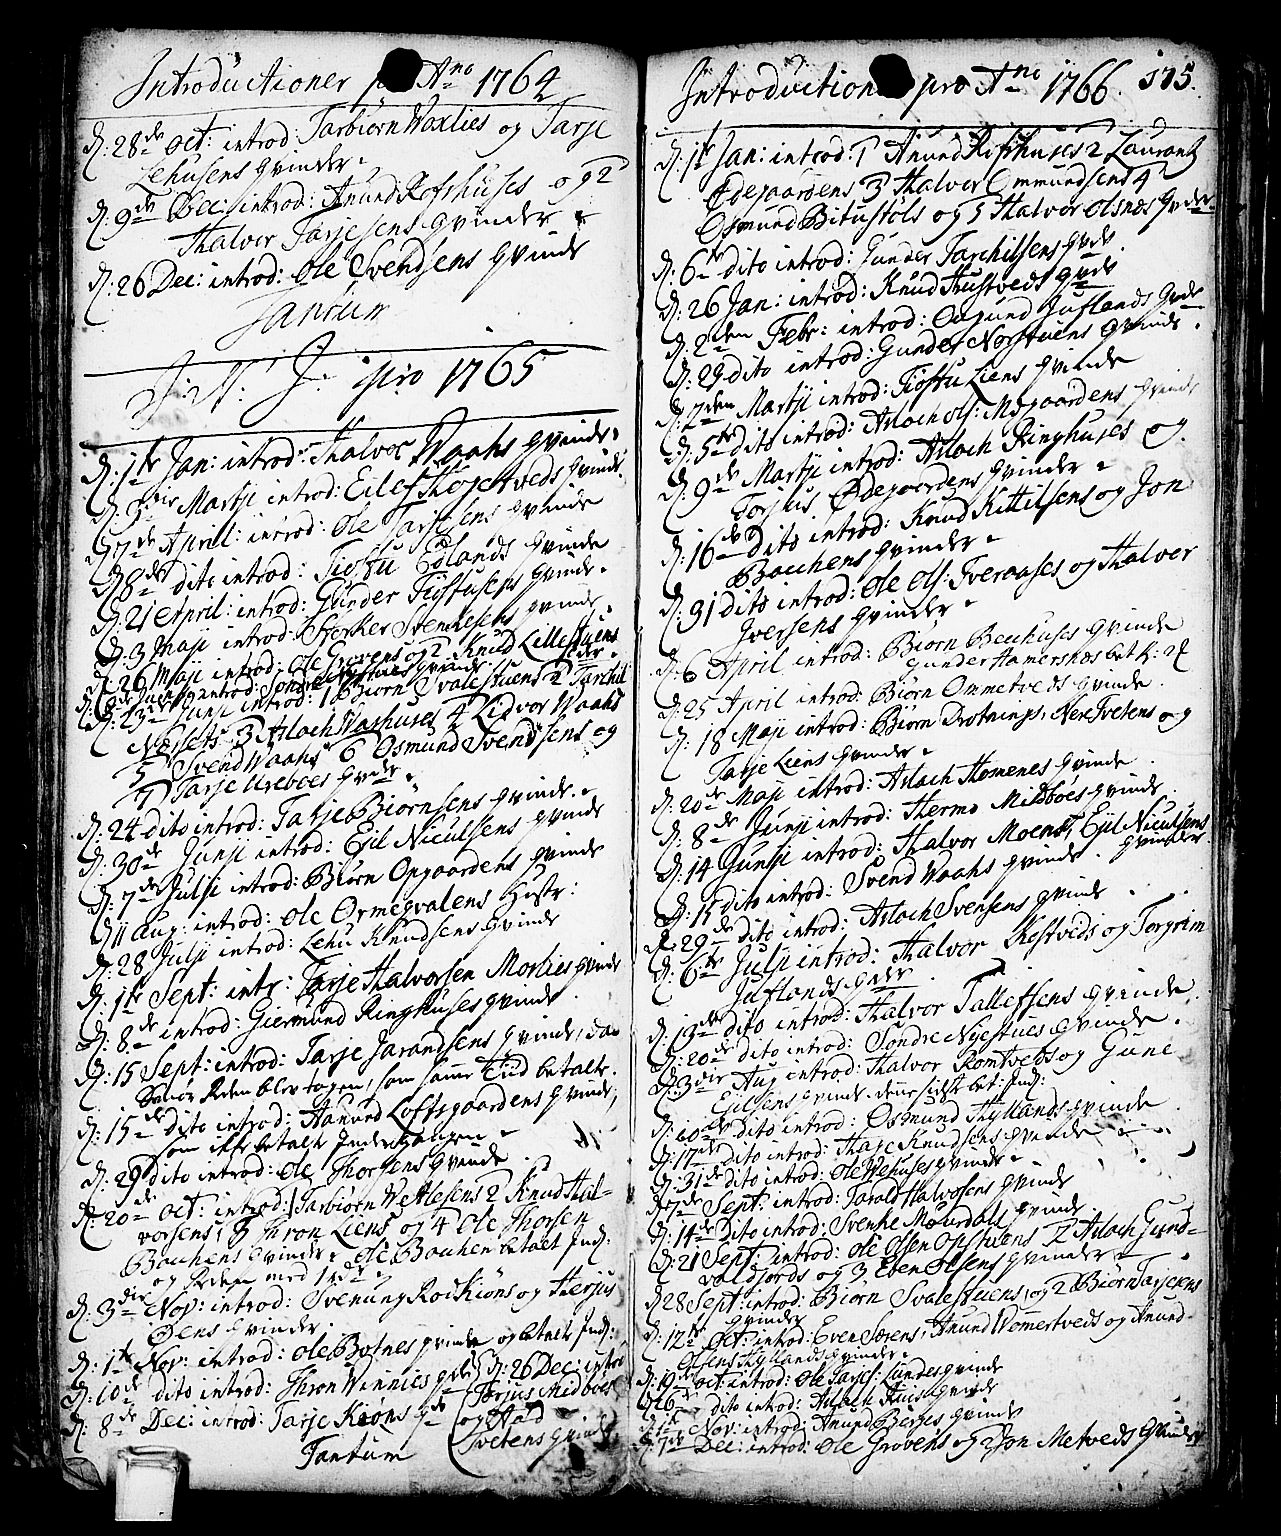 Introductioner pro Ano 1764
D: 28de Oct: introd: Tarbiørn Waxlies og Tarje
Lehusens Qvinder.
D: 9de Dec: introd: Anund Rofshuses og 2
Halvor Tarjesens Qvinder
D: 26 Dec: introd: Ole Svendsens Qvinde
Tantum
J: N: J: pro 1765
D: 1te Jan: introd: Halvor Waahs Qvinde
D: 3die Martji introd: Eilef Høgetveds Qvinde
D 7de April: introd: Ole Tarjesens Qvinde
D: 8de dito introd: Tiostu Edlands Qvinde
D: 21 April: introd: Gunder Tiostusens Qvinde
D: 3 Maji introd: Sterker Svenkesens Qvinde
D: 26 Maji introd: Ole Grovens og 2 Knud Lillestuens
D: introd: Søndre Qvinde
D: 23de Junji introd: 1 Biørn Svalestuens 2 Tarchil
Næssets 3 Aslach Washuses 4 Lidvor Waahs
5 Svend Waahs 6 Osmund Svendsens og
7 Tarje Ureboes Qvder
D: 24 dito introd: Tarje Biørnsens Qvinde
D: 30de Junji introd: Ejel Niculsens Qvinde
D: 7de Julji introd: Biørn Opgaardens Qvinde
D 11 Aug: introd: Ole Ormegvalens Hustr:
D: 28 Julji introd: Lehu Knudsens Qvinde
D: 1te Sept: intr: Tarje Halvorsen Morlies Qvinde
D: 8de introd: Giermund Ringhuses Qvinde
D: 15 Sept: introd: Tarje Jarandsens Qvinde,
blev tagen, som samme Tiid betalte.
D: 15de dito introd: Aanund Loftsgaardens Qvinde,
som ikke betalte Indergangen
D: 29 dito introd: Ole Thorsens Qvinde
D: 20de Oct: introd: 1 Tarbiørn Vetlesens 2 Knud Hal-
vorsens, 3 Thron Liens og 4 Ole Thorsen
Bauhens Qvinder. Ole Bauhen betalt Ind:
og med
D: 3die Nov: introd: Svenung Roikiøns og Herjus
Øens Qvinder.
D: 1te Nov: introd: Ole Botnes Qvinde og betalt Ind:
D: 10de dito introd: Thron Winnies Qvde D: 26 Dec: introd
Torjus Midbøes
D: 8de Dec: introd: Tarje Kiøns Qvde og Aad
Tantum Tvetens Qvinde
Introductioner pro Ano 1766. 575.
D: 1te Jan: introd: 1 Anund Rofshuses 2 Laurantz
Ødegaardens 3 Halvor Ommundsens 4
Osmund Bitustøls og 5 Halvor Olsnæs Qvder
D: 6te dito introd: Gunder Tarchilsens Qvde.
D: 26 Jan: introd: Knud Hustveds Qvde
D: 2den Febr: introd: Ougund Juflands Qvde
D: 29 dito introd: Gunder Norstuens Qvinde.
D: 2den Martji introd: Tiostu Liens Qvinde
D: 5te dito introd: Aslach Ols: Mogaardens Qvinde
D: 9de Martji introd: Aslach Ringhuses og
Torjus Ødegaardens Qvinder
D: 16de dito introd: Knud Kittilsens og Jon
Bauhens Qvinder
D: 31 dito introd: Ole Ols: Tveraases og Halvor
Iversens Qvinder
D: 6 April introd: Biørn Bauhuses Qvinde
Gunder Hamersnæs bet
D: 25 April introd: Biørn Ommetveds Qvinde
D: 18 Maji introd: Biørn Drotnings, Nerx Tvetens og
Tarje Liens Qvinder
D: 20de Maji introd: Aslach Homenes Qvinde
D: 8de Junji introd: Thermo Midbøes Qvinde
D: 14 Junji introd: Halvor Moens, Ejel Niculsens
Qvinder
D: 15 dito introd: Svend Waahs Qvinde
D: 29de dito introd: Aslach Svensens Qvinde
D: 6te Julji introd: Halvor Restveds og Torgrim
Juflands Qvder
D: 13de dito introd: Halvor Tallefsens Qvinde
D: 20de dito introd: Søndre Nyestues Qvinde
D: 3die Aug introd: Halvor Romtveds og Gune
Ejelsens Qvinde, denne sidst bet: Ind:
D: 10de dito introd: Osmund Hyllands Qvinde
D: 17de dito introd: Haje Knudsens Qvinde
D: 31de dito introd: Ole Wehuses Qvinde
D: 7de Sept: introd: Tarald Halvosens Qvinde
D: 14de dito introd: Svenke Mourdals Qvinde
D: 21 Sept: introd: Ole Olsen Opstuens 2 Aslach Gund-
valdjords og 3 Eben Olsens Qvinder
D 28 Sept: introd: Biørn Svalestuens, og 2 Biørn Tarjesens
Qvinder
D: 12te Oct: introd: Even Sørens, Anund Womertveds og Anund
Olsens Hyllands Qvinder
D: 19de Oct: introd: Ole Tarjes: Lundes Qvinde
D 26de dito introd: Aslach Qvinde
D: 1te Nov: introd: Anund Berges Qvinde
D: 7de Dec: introd: Ole Grovens og 2 Jon Metveds Qvinder